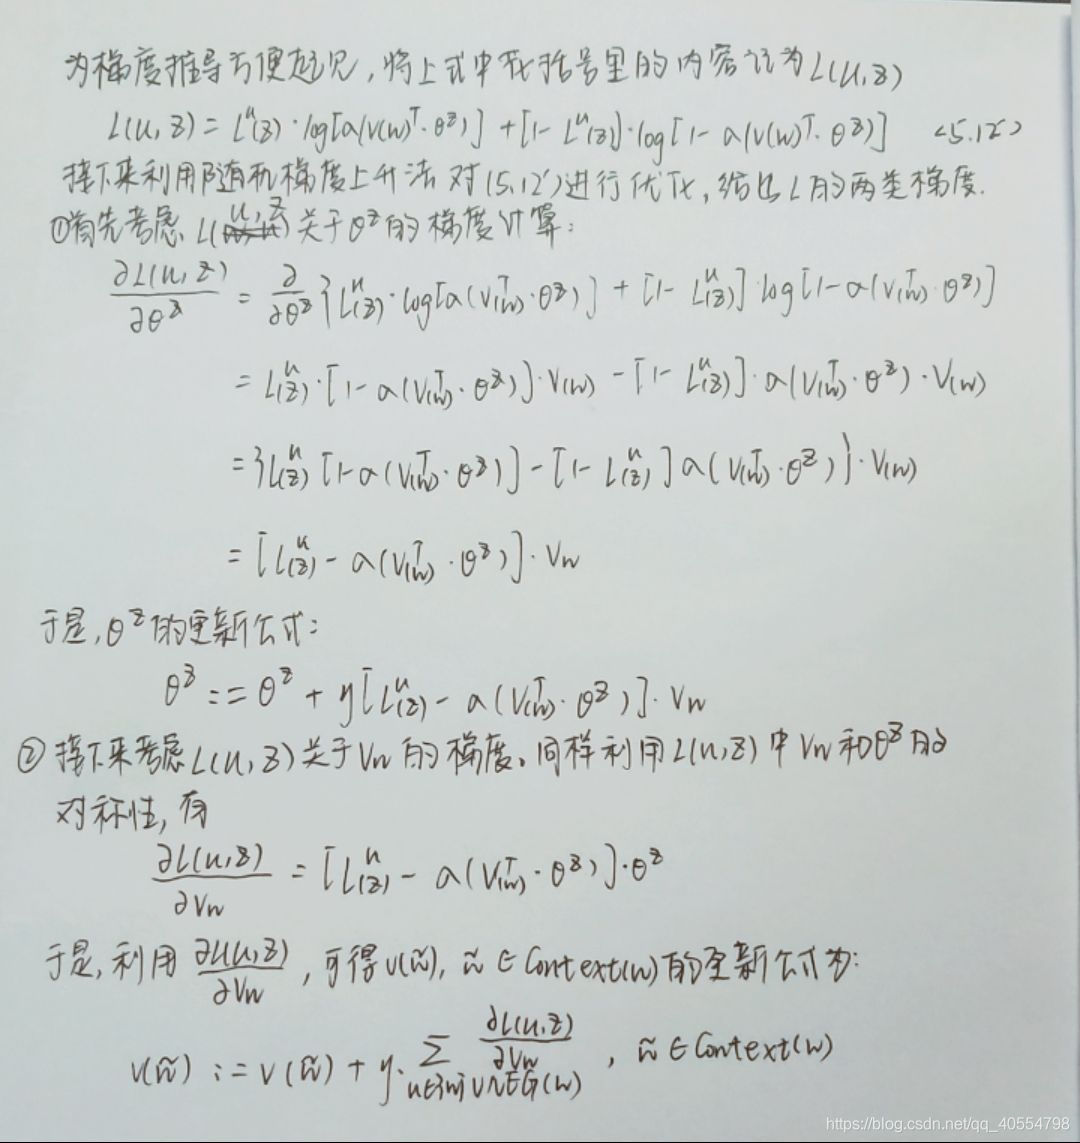 为梯度推导方便起见,将上式中花括号里的内容记为L(u,z)
L(u,z) = L^u(z)·log[σ(v(w)^T·θ^z)] + [1-L^u(z)]·log[1-σ(v(w)^T·θ^z)] <5.12>
接下来利用随机梯度上升法对(5.12)进行优化,给出L的两类梯度.
①首先考虑L(u,z)关于θ^z的梯度计算:
∂L(u,z)/∂θ^z = ∂/∂θ^z {L^u(z)·log[σ(v(w)^T·θ^z)] + [1-L^u(z)]·log[1-σ(v(w)^T·θ^z)]
= L^u(z)·[1-σ(v(w)^T·θ^z)]·v(w) - [1-L^u(z)]·σ(v(w)^T·θ^z)·v(w)
= {L^u(z)[1-σ(v(w)^T·θ^z)] - [1-L^u(z)]σ(v(w)^T·θ^z)}·v(w)
= [L^u(z) - σ(v(w)^T·θ^z)]·Vw
于是,θ^z的更新公式:
θ^z := θ^z + η[L^u(z) - σ(v(w)^T·θ^z)]·Vw
②接下来考虑L(u,z)关于Vw的梯度。同样利用L(u,z)中Vw和θ^z的
对称性,有
∂L(u,z)/∂Vw = [L^u(z) - σ(v(w)^T·θ^z)]·θ^z
于是,利用∂L(u,z)/∂Vw,可得v(w̃),w̃∈Context(w)的更新公式为:
v(w̃) := v(w̃) + η·∑_{u∈{w}∪NEG(w)} ∂L(u,z)/∂Vw , w̃∈Context(w)
https://blog.csdn.net/qq_40554798